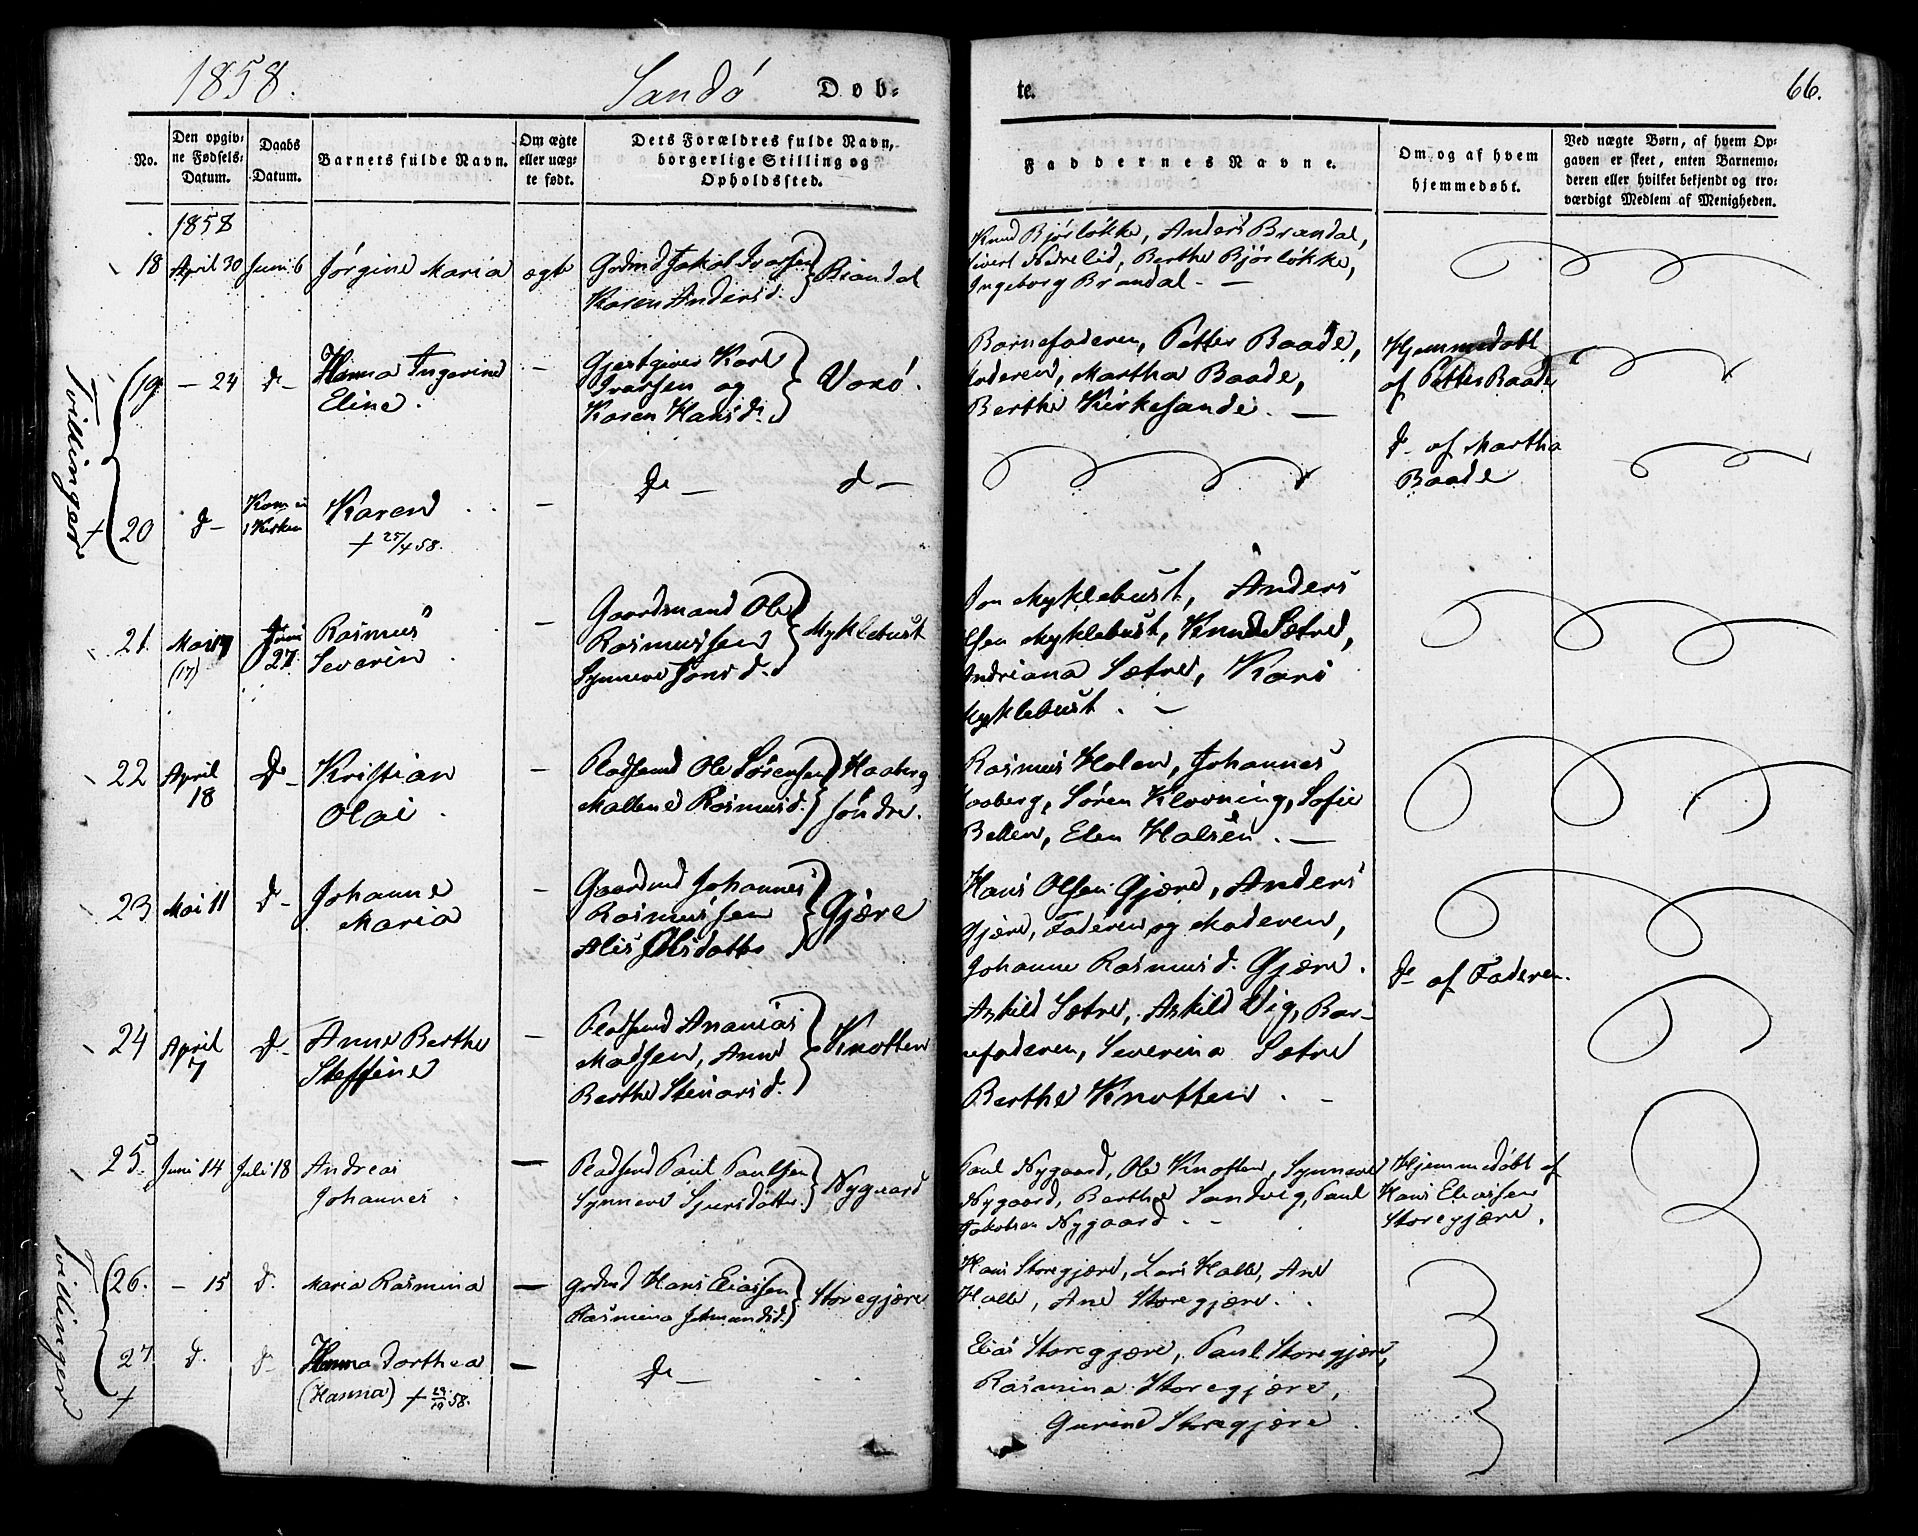 1858. Sandö Døb- te. 66.
No.
Den opgiv-
ne Fødsels-
Datum.
Daabs
Datum.
Barnets fulde Navn.
Om ægte
eller uæg-
te født.
Dets Forældres fulde Navn,
borgerlige Stilling og
Opholdssted.
Faddernes Navne.
Om og af hvem
hjemmedøbt.
Ved uægte Børn, af hvem Op-
gaven er skeet, enten Barnemo-
deren eller hvilket bekjendt og tro-
værdigt Medlem af Menigheden.
1858
18 April 30 Juni 6 Jörgine Maria ægte
Gdmd Jakob Ivarsen
Karen Andersd. } Brandal
Knud Bjørløkke, Anders Brandal,
Sivert Nedrelid, Berthe Bjørløkke,
Ingeborg Brandal. —
Tvillinger
19. — 24 do — Hanna Ingerine
Eline. —
Gjestgiver Karl
Ivarsen og
Karen Hansd. } Voxö.
Barnefaderen, Petter Baade,
Moderen, Martha Baade,
Berthe Kirkesande. —
Hjemmedöbt
af Petter Baade
+ 20 do — Kom ei
i Kirken Karen
+ 25/4 58. —
do — do —
do — af Martha
Baade
21. Mai 17
(17) Juni
27 Rasmus
Severin —
Gaardmand Ole
Rasmussen
Synneve Jonsd. } Myklebust
Jon Myklebust, Anders
Olsen Myklebust, Knud Sætre,
Andriana Sætre, Kari
Myklebust. —
22 April
18 do — Kristian
Olai. —
Pladsmd Ole Sörensen
Mallene Rasmusd. } Haaberg
söndre.
Rasmus Holen, Johannes
Haaberg, Sören Klovning, Sofie
Ballen, Elen Halsen. —
23 Mai 11 do — Johanne
Maria —
Gaardmd Johannes
Rasmussen
Alis Olsdatter } Gjære
Hans Olsen Gjære, Anders
Gjære, Faderen og Moderen,
Johanne Rasmusd. Gjære.
do — af Faderen.
24 April
7 do — Anne Berthe
Steffine —
Pladsmd Ananias
Madsen, Anne
Berthe Steinarsd. } Knotten
Askild Sætre, Askild Vig, Bar-
nefaderen, Severina Sætre
Berthe Knotten. —
25. Juni 14 Juli 18 Andreas
Johannes. —
Pladsmd Paul Paulsen
Synneve Sjursdatter } Nygaard
Paul Nygaard, Ole Knotten, Synneve
Nygaard, Berthe Sandvig, Paul
Jakobsen Nygaard. —
Hjemmedöbt af
Hans Eliassen
Storegjære.
Tvillinger
26. — 15 do. Maria Rasmina —
Gdmd Hans Eliassen
Rasmina Johansd. } Storegjære
Hans Storegjære, Lars Halle, Ane
Halle, Ane Storegjære.
27 do. do — Hanna Dorthea —
+ (Hanna) + 29/10 58.
do —
Elias Storegjære, Paul Storegjære,
Rasmina Storegjære,
Gurine Storegjære.